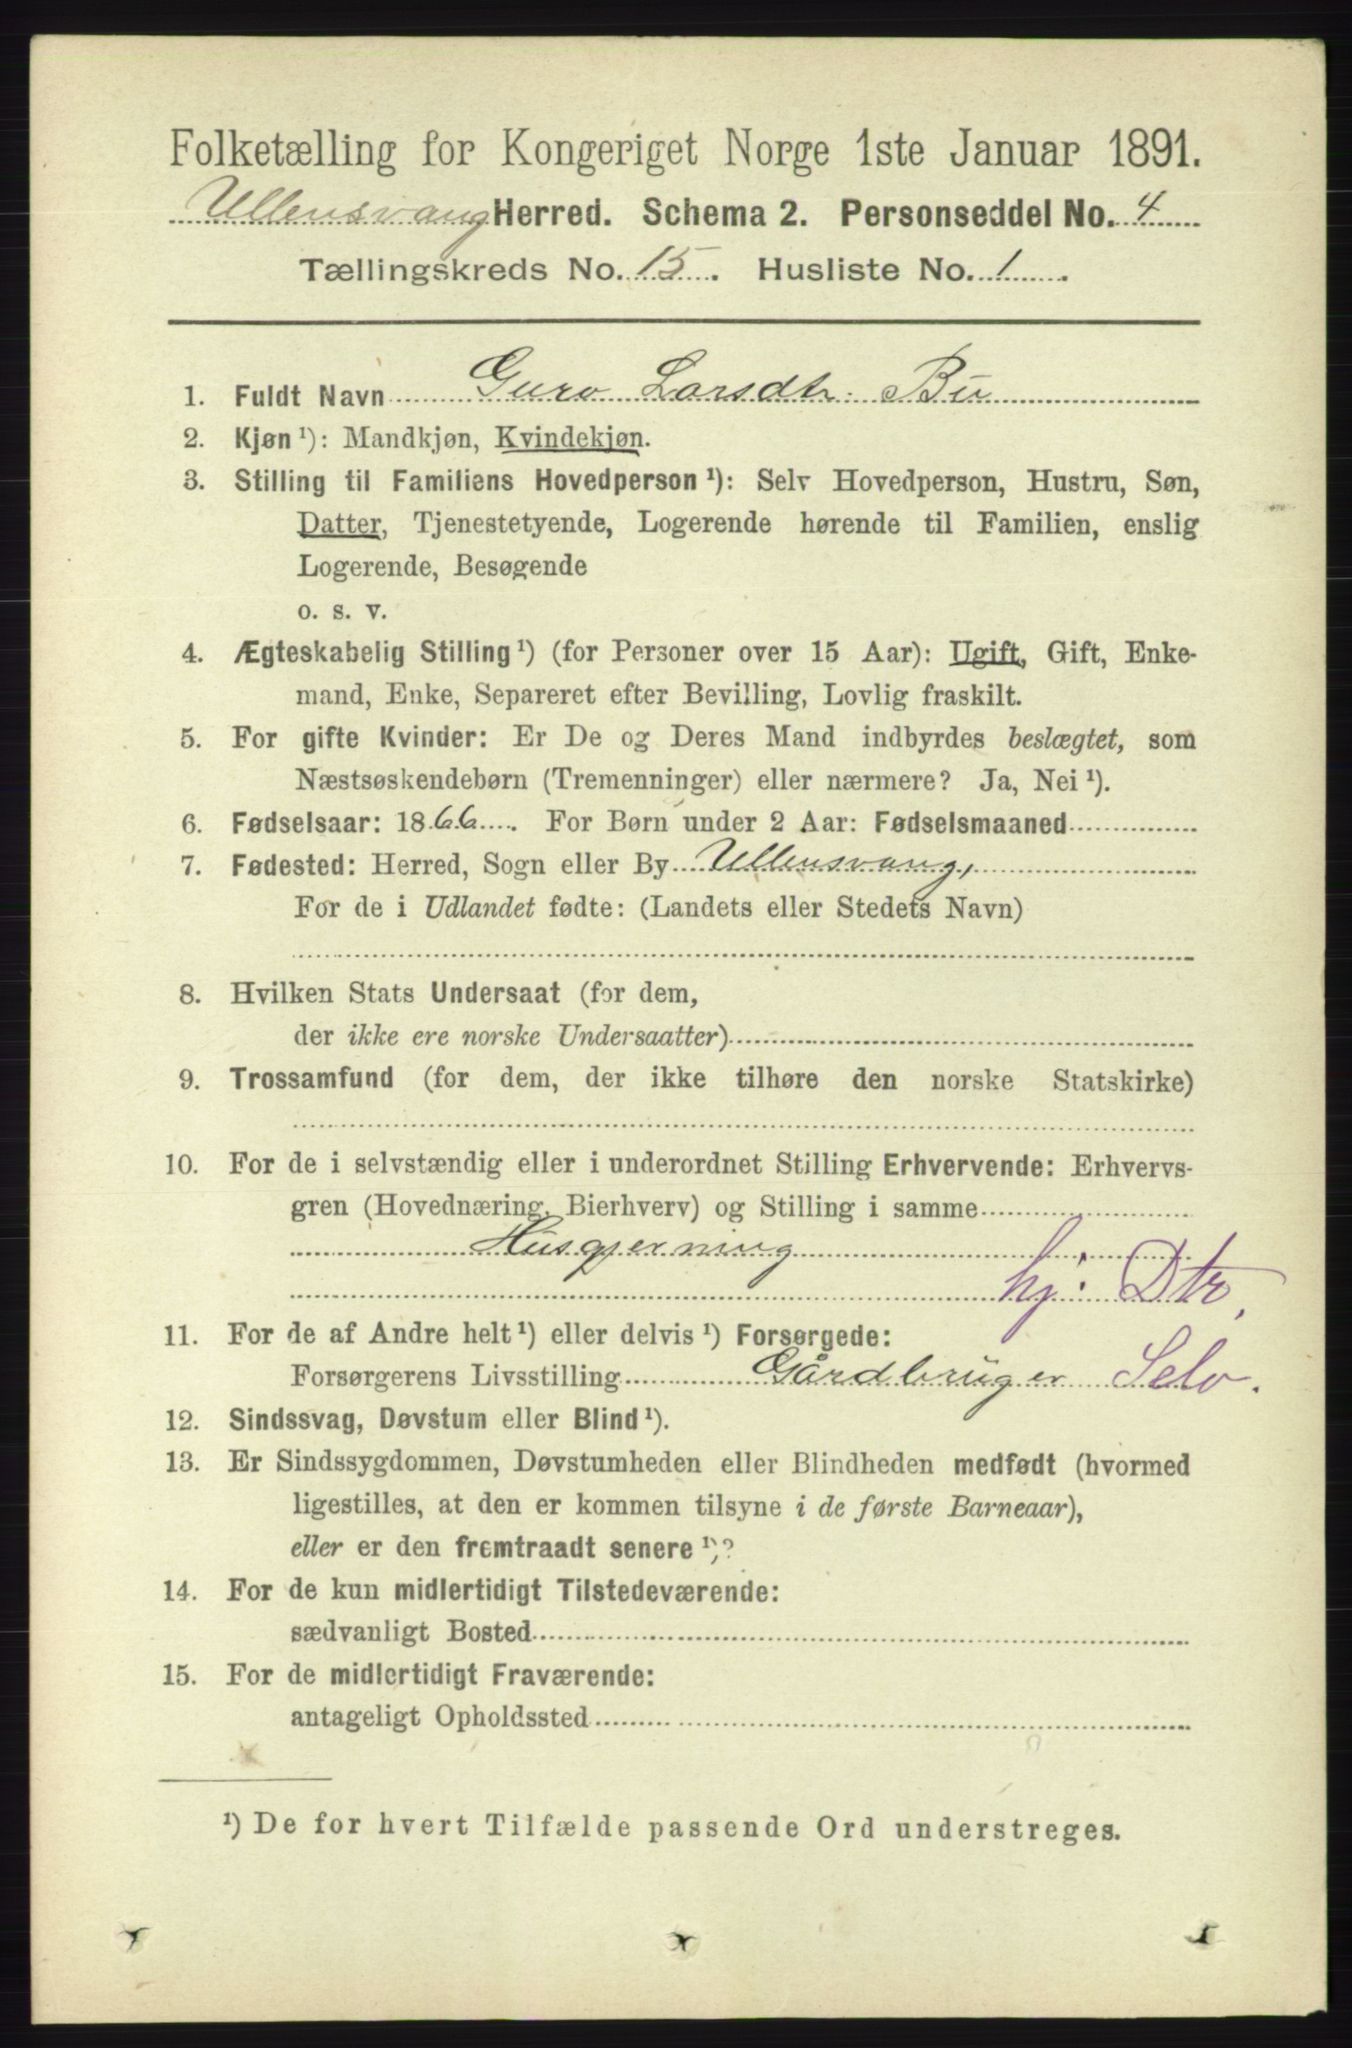 Folketælling for Kongeriget Norge 1ste Januar 1891.
Ullensvang Herred. Schema 2. Personseddel No. 4
Tællingskreds No. 15. Husliste No. 1.
1. Fuldt Navn Guro Larsdtr. Bu
2. Kjøn ¹): Mandkjøn, Kvindekjøn.
3. Stilling til Familiens Hovedperson ¹): Selv Hovedperson, Hustru, Søn,
Datter, Tjenestetyende, Logerende hørende til Familien, enslig
Logerende, Besøgende
o. s. v.
4. Ægteskabelig Stilling ¹) (for Personer over 15 Aar): Ugift, Gift, Enke-
mand, Enke, Separeret efter Bevilling, Lovlig fraskilt.
5. For gifte Kvinder: Er De og Deres Mand indbyrdes beslægtet, som
Næstsøskendebørn (Tremenninger) eller nærmere? Ja, Nei ¹).
6. Fødselsaar: 1866. For Børn under 2 Aar: Fødselsmaaned
7. Fødested: Herred, Sogn eller By Ullensvang,
For de i Udlandet fødte: (Landets eller Stedets Navn)
8. Hvilken Stats Undersaat (for dem,
der ikke ere norske Undersaatter)
9. Trossamfund (for dem, der ikke tilhøre den norske Statskirke)
10. For de i selvstændig eller i underordnet Stilling Erhvervende: Erhvervs-
gren (Hovednæring, Bierhverv) og Stilling i samme
Husgjerning
hj. Dtr,
11. For de af Andre helt ¹) eller delvis ¹) Forsørgede:
Forsørgerens Livsstilling Gårdbruger Selv.
12. Sindssvag, Døvstum eller Blind ¹).
13. Er Sindssygdommen, Døvstumheden eller Blindheden medfødt (hvormed
ligestilles, at den er kommen tilsyne i de første Barneaar),
eller er den fremtraadt senere ¹)?
14. For de kun midlertidigt Tilstedeværende:
sædvanligt Bosted
15. For de midlertidigt Fraværende:
antageligt Opholdssted
¹) De for hvert Tilfælde passende Ord understreges.